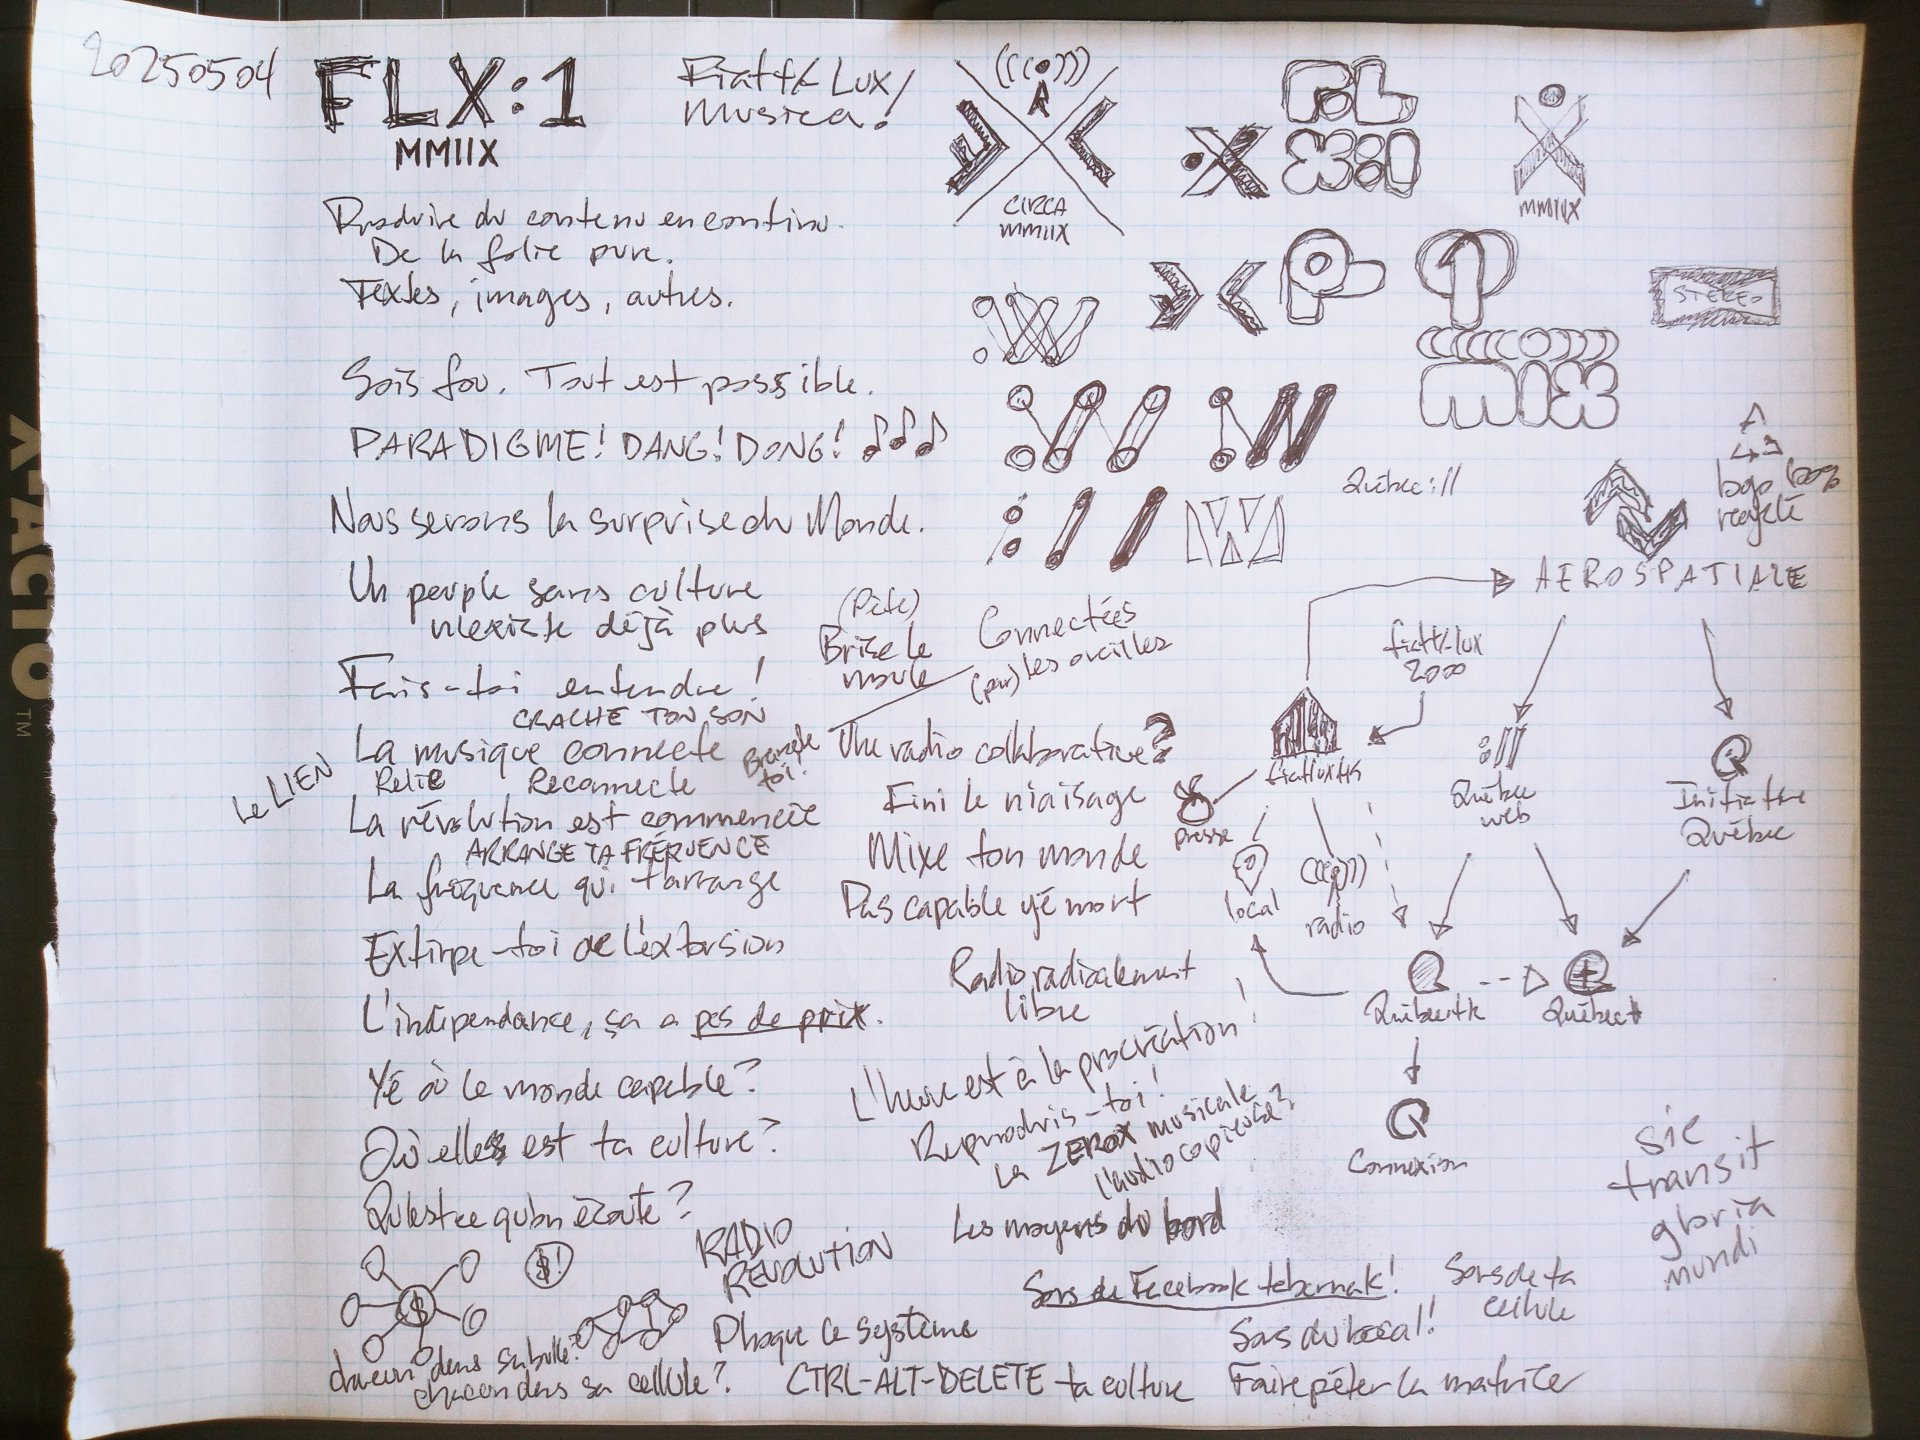 20250504
FLX:1
MMIIX
Fiattk Lux/
Musica!
CIRCA
MMIIX
FL
X:1
MMIIX
Produire du contenu en continu.
De la folie pure.
Textes, images, autres.
STEREO
MIX
Sois fou. Tout est possible.
PARADIGME! DANG! DONG!
Québec://
logo 100%
recyclé
Nous serons la surprise du Monde.
AEROSPATIALE
Un peuple sans culture
n'existe déjà plus
(Pète)
Brise le
moule
Connectées
(par) les oreilles
fiattk-lux
2000
Fais-toi entendre!
CRACHE TON SON
La musique connecte
Relie
Reconnecte
Branche
toi!
Le LIEN
La révolution est commencée
ARRANGE TA FRÉQUENCE
La fréquence qui t'arrange
Extirpe-toi de l'extorsion
L'indépendance, ça a pas de prix.
Yé où le monde capable?
Où elles est ta culture?
Qu'est ce qu'on écoute?
Une radio collaborative?
Fini le niaisage
Mixe ton monde
Pas capable yé mort
Radio radicalement
libre
L'heure est à la procréation!
Reproduis-toi!
La ZEROX musicale
l'audiocopieuse?
Les moyens du bord
fiatluxttk
presse
local
radio
Québec
web
Initiative
Québec
Québecttk
Québect
Connexion
sic
transit
gloria
mundi
$!
$
RADIO
REVOLUTION
chacun dans sa bulle?
chacun dans sa cellule?
Phoque le système
CTRL-ALT-DELETE ta culture
Sors de Facebook tabarnak!
Sors de ta
cellule
Sors du bocal!
Faire péter la matrice
X-ACTO™